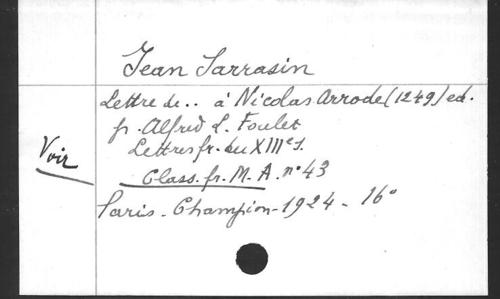 Jean Sarrasin
Lettre de.. à Nicolas Arrode (1249) ed.
p. Alfred L. Foulet
Lettres fr. du XIIIe s.
Voir
Class. fr. M. A. n° 43
Paris - Champion - 1924 - 16°